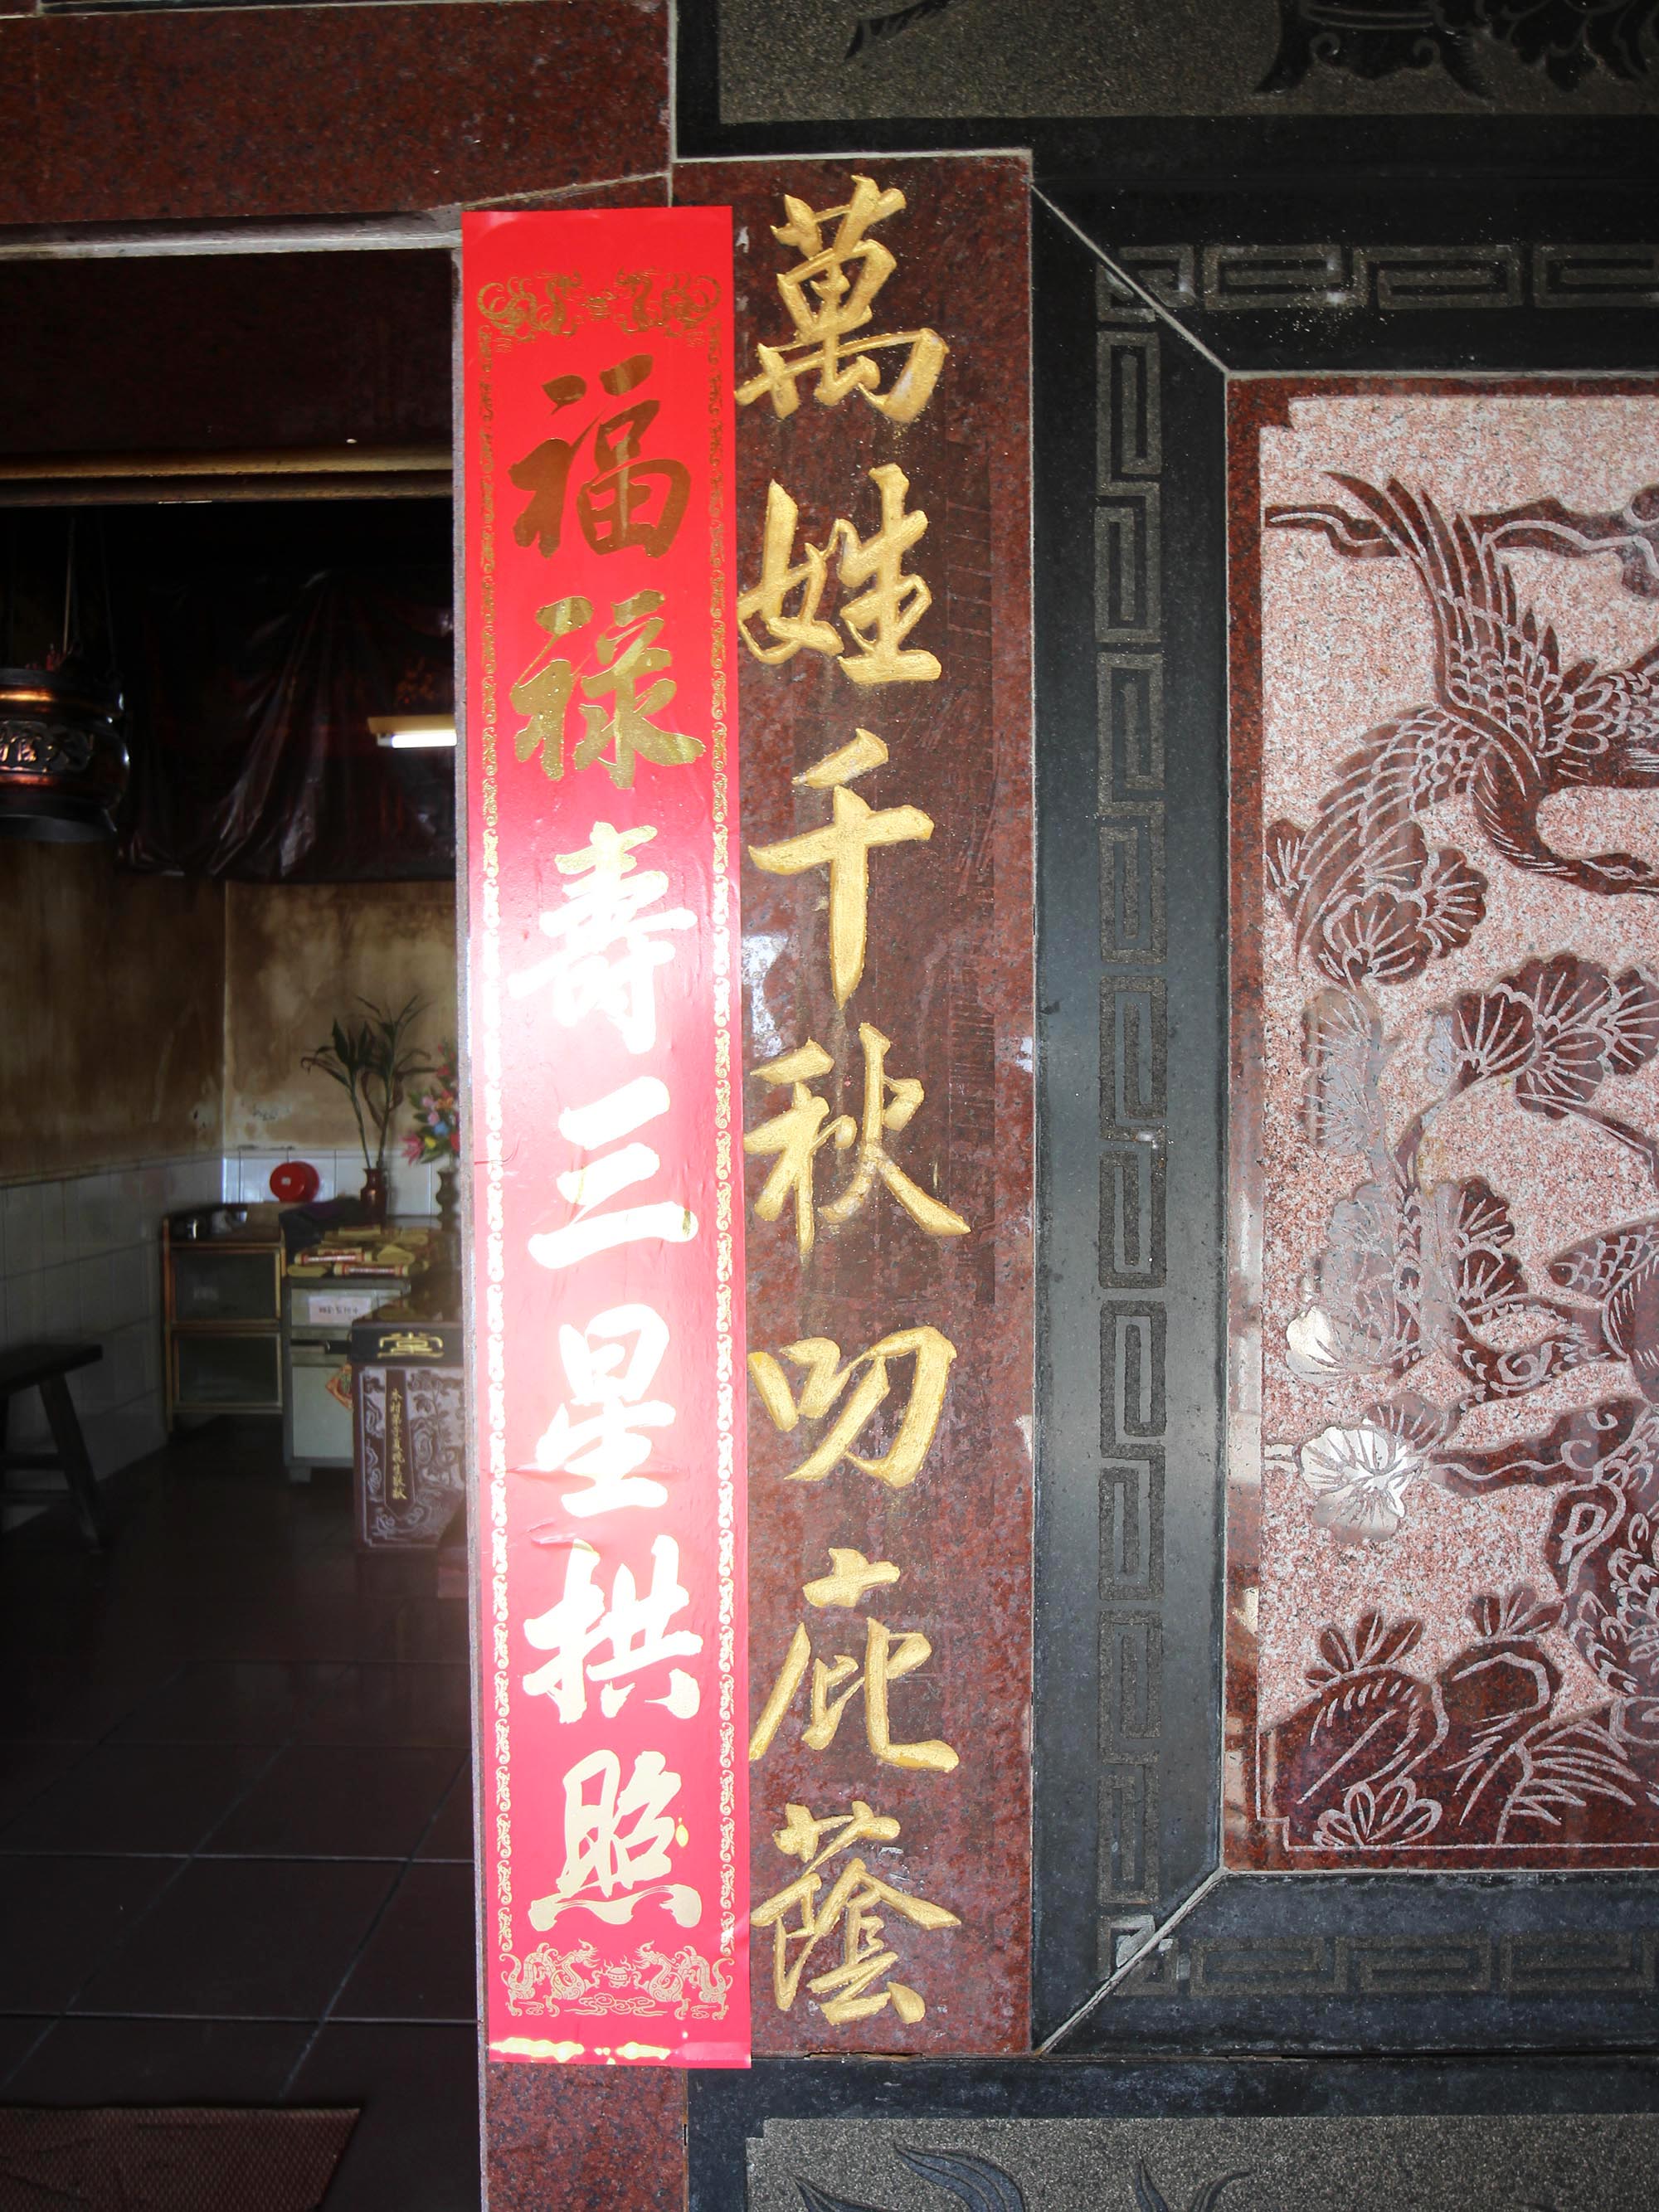 萬姓千秋叨庇蔭
福祿壽三星拱照
堂